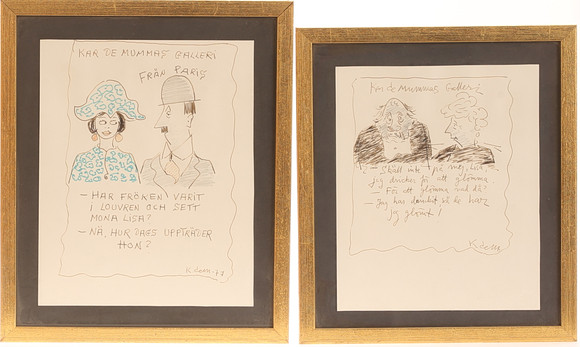 KAR DE MUMMAS GALLERI
FRÅN PARIS
- HAR FRÖKEN VARIT
I LOUVREN OCH SETT
MONA LISA?
- NÄ, HUR DAGS UPPTRÄDER
HON?
Kar de Mummas Galleri
- Skäll inte på mej, Lisa
jag dricker för att glömma
- För att glömma vad då?
- Jag har
jag glömt!
K de M